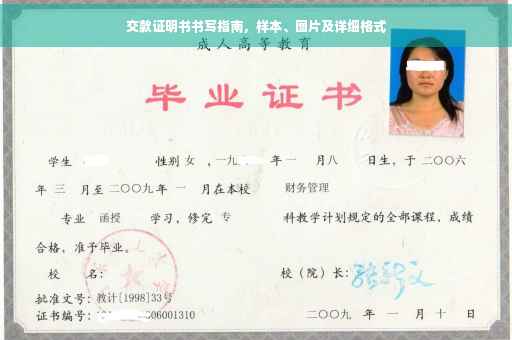 交款证明书书写指南，样本、图片及详细格式
成人高等教育
毕业证书
学生 性别 女 ，一九 年一 月八 日生，于二〇〇六
年 三 月至二〇〇九年 一 月在本校 财务管理
专业 函授 学习，修完 专 科教学计划规定的全部课程，成绩
合格，准予毕业。
校 名： 校（院）长：
批准文号：教计[1998]33号
证书编号： 06001310 二〇〇九 年 一 月 十 日